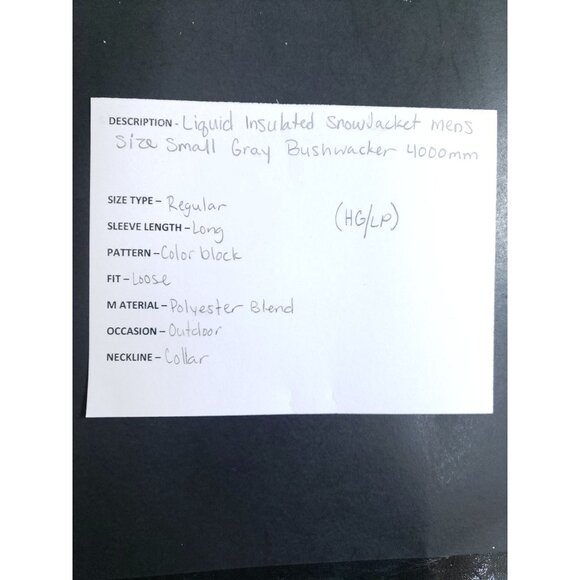 DESCRIPTION - Liquid Insulated SnowJacket mens
Size Small Gray Bushwacker 4000mm
SIZE TYPE – Regular
(HG/LP)
SLEEVE LENGTH – Long
PATTERN – Color block
FIT – Loose
M ATERIAL – Polyester Blend
OCCASION – Outdoor
NECKLINE – Collar